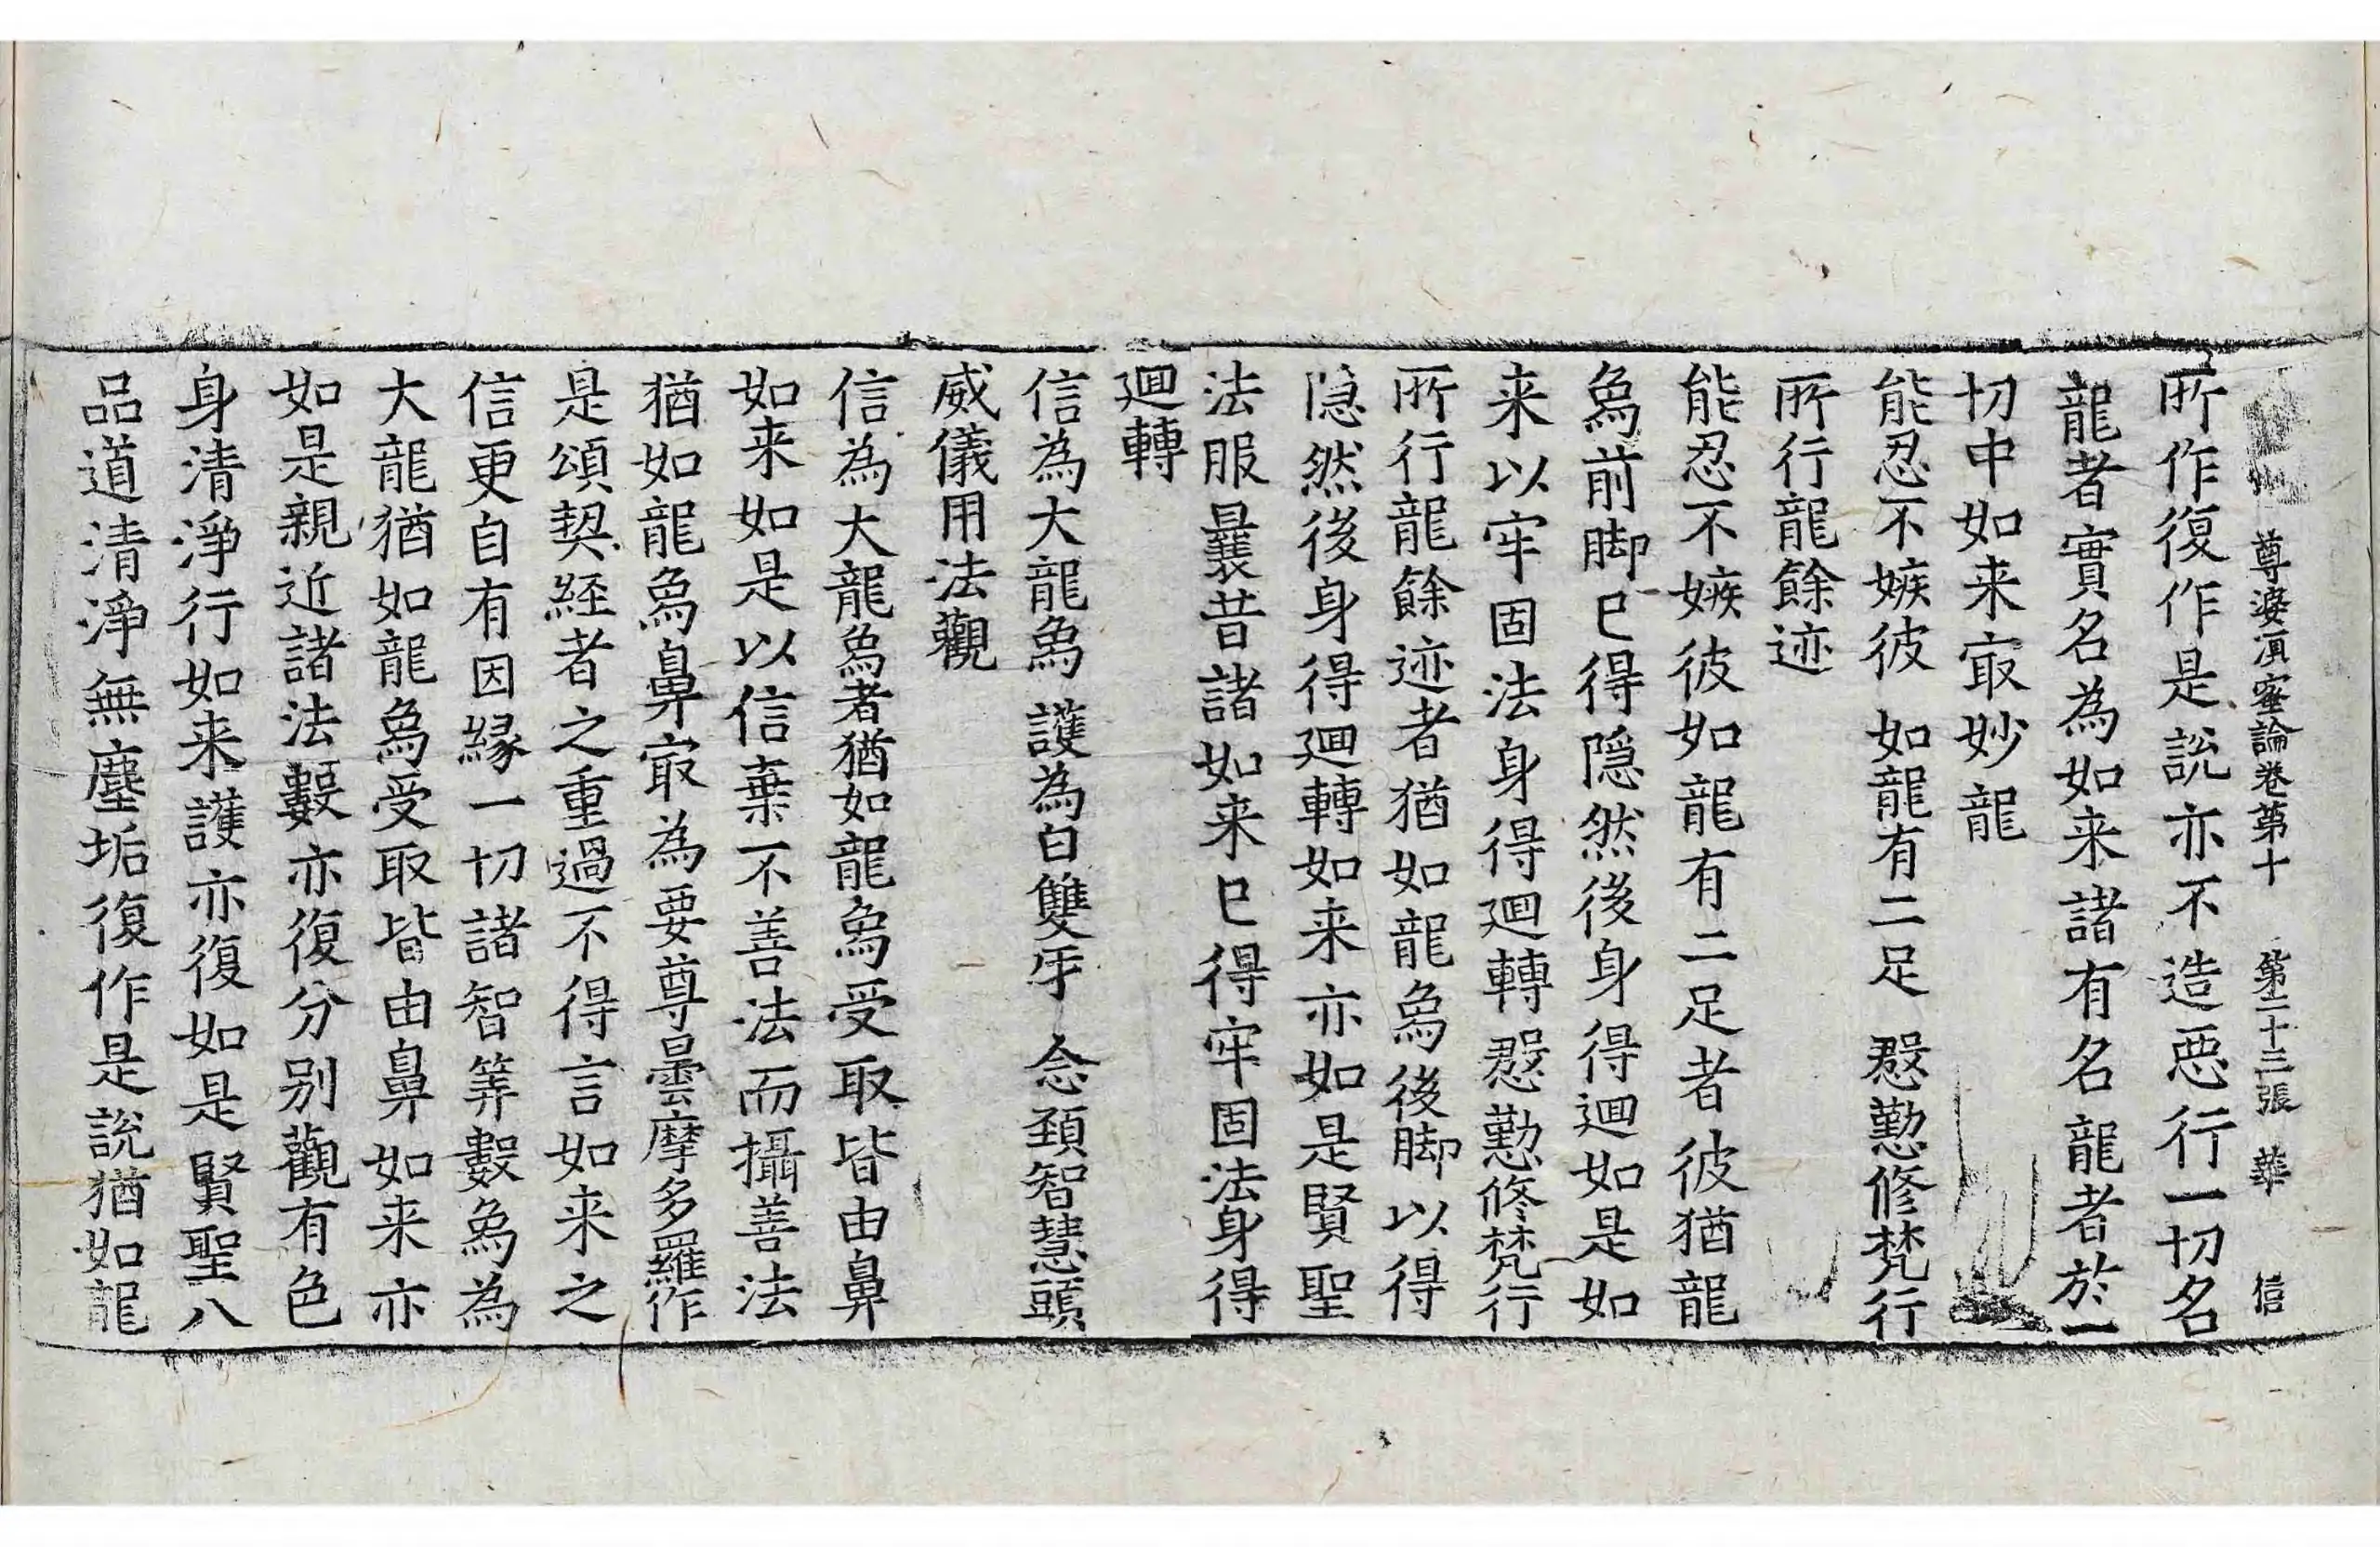 尊婆湏蜜論卷第十 第二十三張 華 信
所作復作是說亦不造惡行一切名
龍者實名為如来諸有名龍者於一
切中如来㝡妙龍
能忍不嫉彼 如龍有二足 慇懃修梵行
所行龍餘迹
能忍不嫉彼如龍有二足者彼猶龍
爲前脚已得隐然後身得迴如是如
来以牢固法身得迴轉慇懃修梵行
所行龍餘迹者猶如龍爲後脚以得
隐然後身得迴轉如来亦如是賢聖
法服曩昔諸如来已得牢固法身得
迴轉
信為大龍爲 護為白雙牙 念頚智慧頭
威儀用法觀
信為大龍爲者猶如龍爲受取皆由鼻
如来如是以信棄不善法而攝善法
猶如龍爲鼻㝡為要尊曇摩多羅作
是頌契経者之重過不得言如来之
信更自有因緣一切諸智䓁數爲為
大龍猶如龍爲受取皆由鼻如来亦
如是親近諸法數亦復分别觀有色
身清淨行如来護亦復如是賢聖八
品道清淨無塵垢復作是說猶如龍